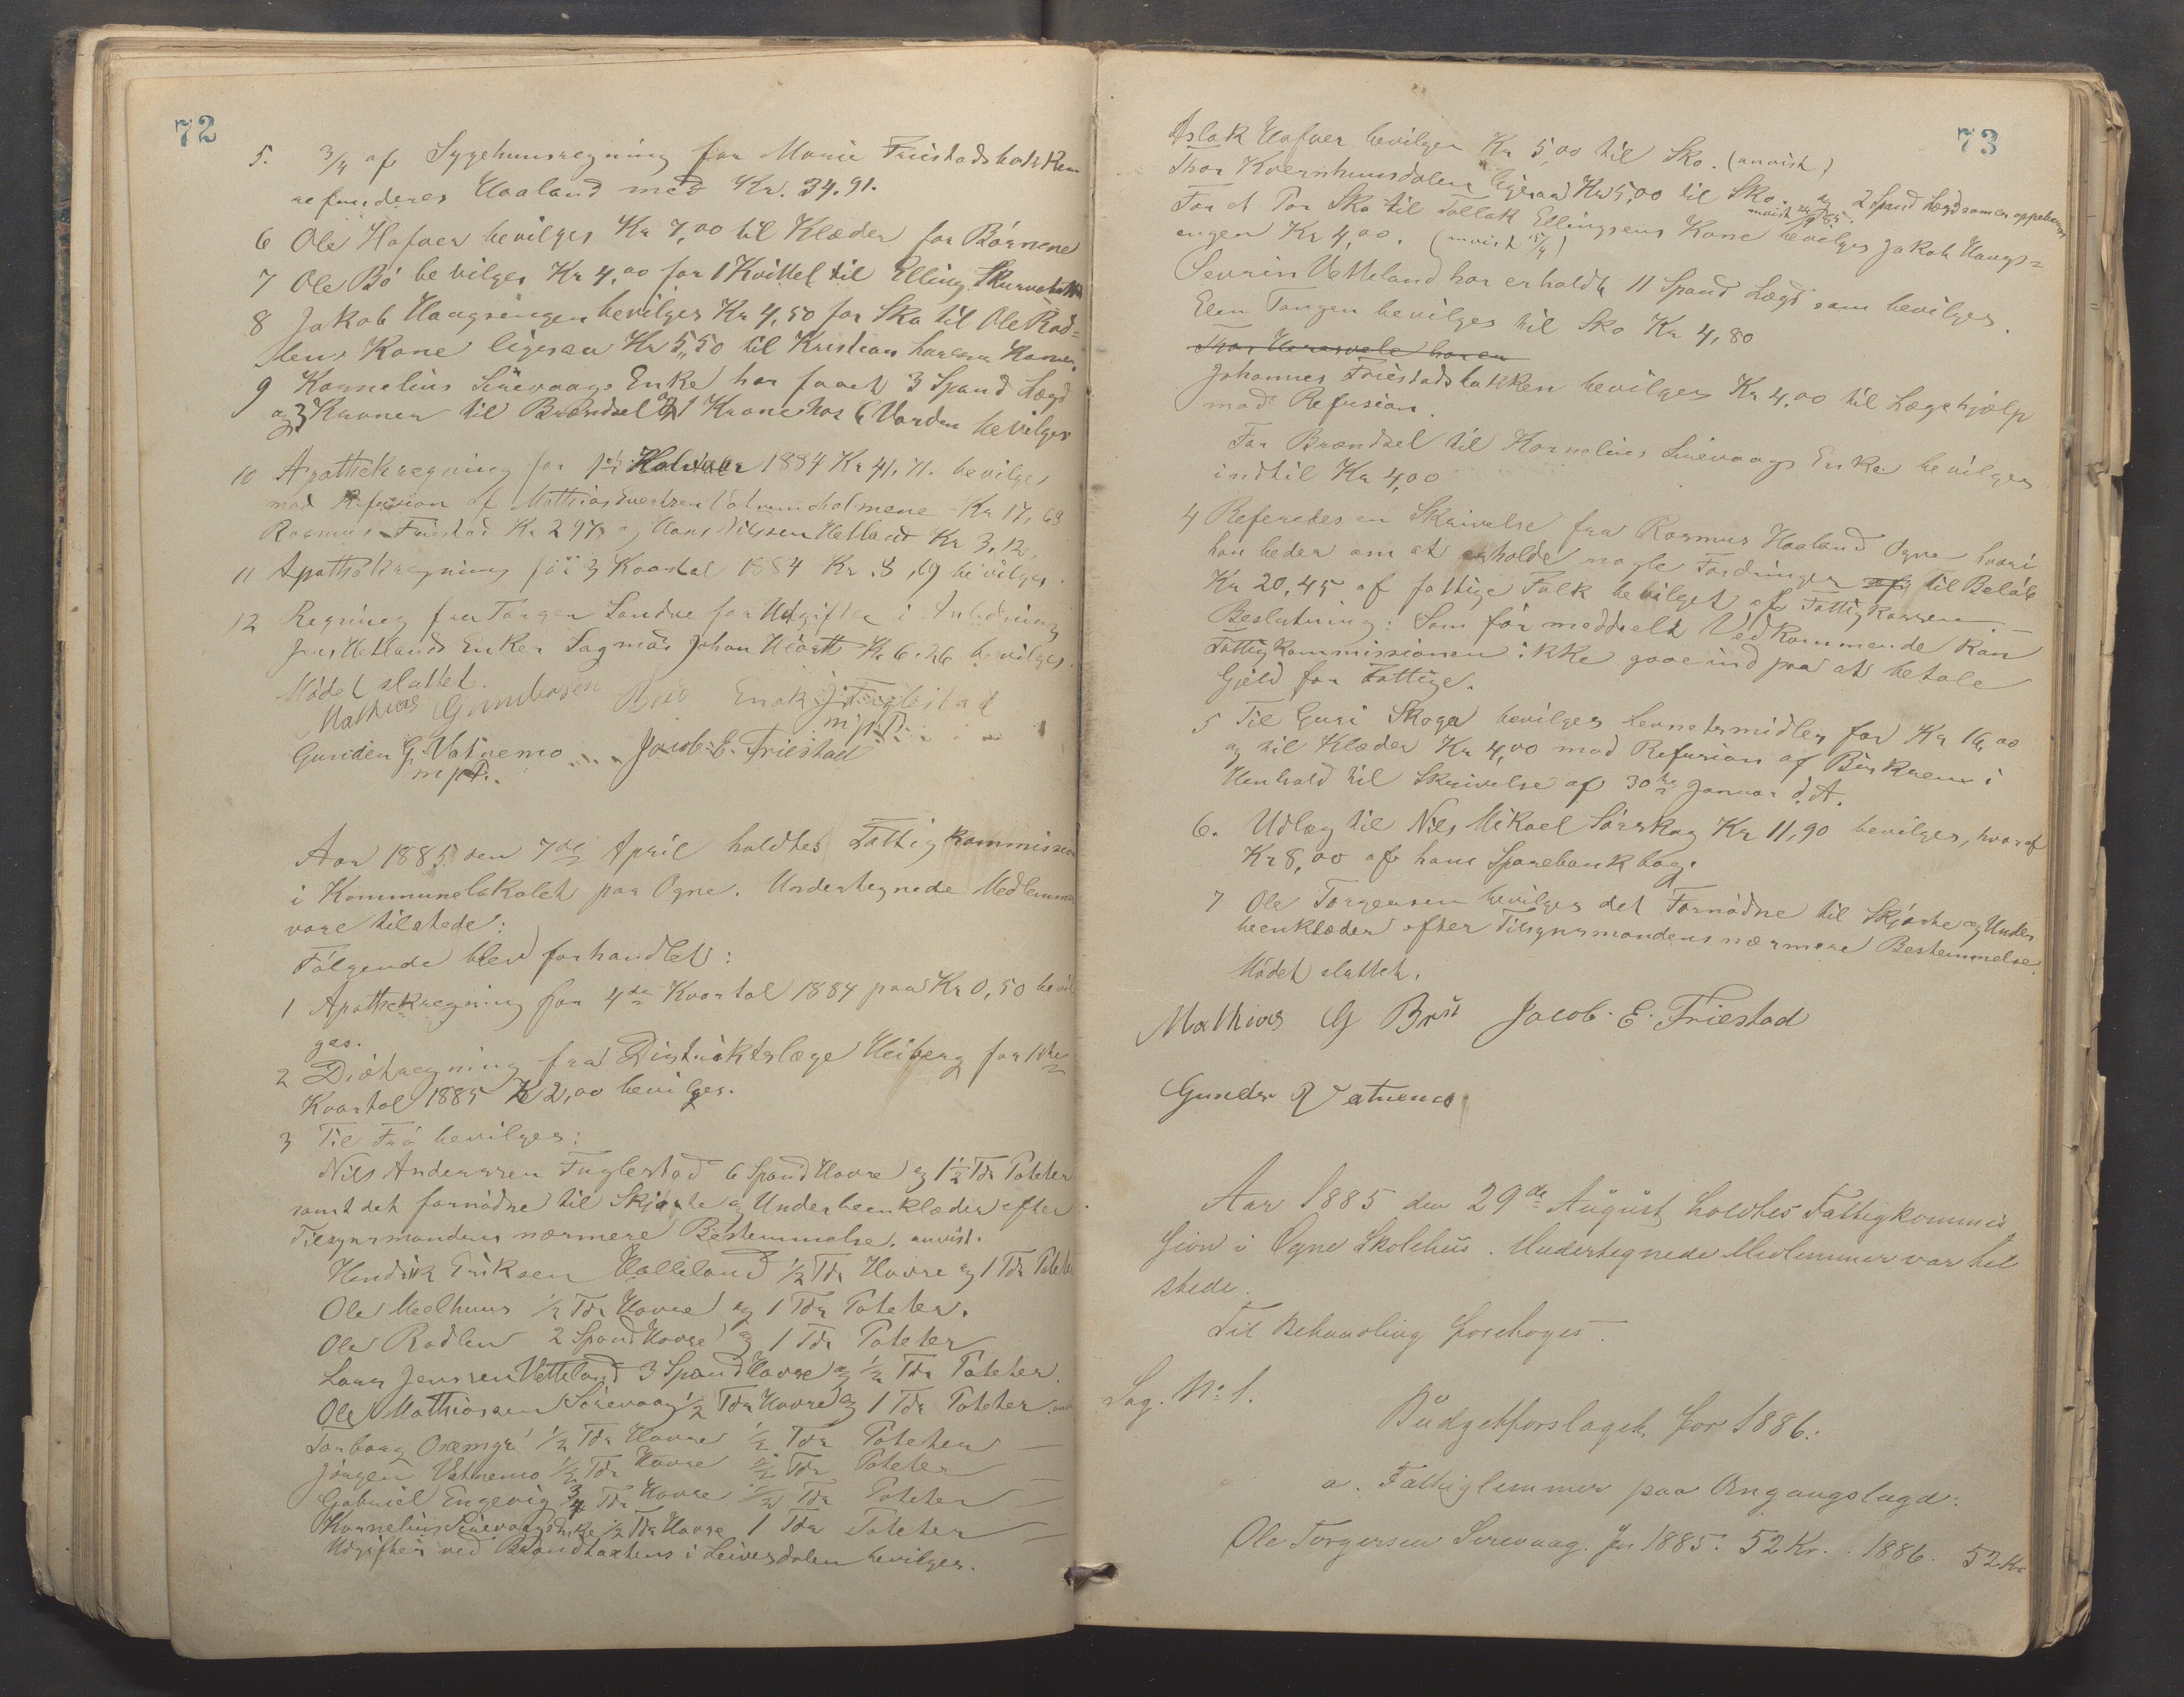 72
5. 3/4 af Sygehuusregning for Marie Friestadsbakken
refunderes Haaland med Kr. 34.91.
6 Ole Hafver bevilges Kr 7,00 til Klæder for Børnene
7 Ole Bö bevilges Kr 4,00 for 1 Kvittel til Elling
8 Jakob Haugsengen bevilges Kr 4,50 for Sko til Ole Rod-
lens Kone ligesaa Kr 5,50 til Kristian
9 Kornelius Sirevaags Enke har faaet 3 Spand Lægd
og 3 Kroner til Brændsel og 1 Krone hos bevilges
10 Apothekregning for 1884 Kr 41.71. bevilges
mod Refusion af Mathias Kr 17,69
Rasmus Friestad Kr 2 97 og Hans Nilssen Hetland Kr 3,12.
11 Apothekregning for 3 Kvartal 1884 Kr. 8,19 bevilges.
12 Regning fra Torger Sandve for Udgifter i Anledning
Jens Hetlands Enkes Sagmål Johan Kr 6.26 bevilges.
Mödet sluttet.
Mathias Gundersen Brü Enok J Fuglestad
m/p P.
Gunder G. Vatnemo Jacob. E. Friestad
m p P.
Aar 1885 den 7de April holdtes Fattigkommission
i Kommunelokalet paa Ogne. Undertegnede Medlemmer
vare tilstede:
Følgende blev forhandlet:
1 Apothekregning for 4de Kvartal 1884 paa Kr 0,50 bevil
ges.
2 Diætregning fra Distriktslæge Heiberg for 1ste
Kvartal 1885 Kr 2,00 bevilges.
3 Til Frö bevilges:
Nils Anderssen Fuglestad 6 Spand Havre og 1 1/2 Tdr Poteter
samt det fornødne til Skjorte og Underbeenklæder efter
Tilsynsmandens nærmere Bestemmelse. anvist.
Hendrik Eriksen Hølleland 1/2 Tdr Havre og 1 Tdr Poteter
Ole Meelhuus 1/2 Tdr Havre og 1 Tdr Poteter.
Ole Rodlen 2 Spand Havre og 1 Tdr Poteter
Lars Jenssen Vetteland 3 Spand Havre og 1/2 Tdr Poteter.
Ole Mathiassen Sirevaag 1/2 Tdr Havre og 1 Tdr Poteter
Torborg 1/2 Tdr Havre 1/2 Tdr Poteter —
Jörgen Vatnemo 1/2 Tdr Havre 1/2 Tdr Poteter —
Gabriel Engevig 3/4 Tdr Havre 1/2 Tdr Poteter —
Kornelius Sirevaags Enke 1/2 Tdr Havre 1 Tdr Poteter —
Udgifter ved Brandtaxtens i Leiversdalen bevilges.
73
Aslak Hafver bevilges Kr 5,00 til Sko. (anvist)
Thor Kvernhuusdalen ligesaa Kr 5,00 til Sko. og 2 Spand Lægd som er oppebaaret
For et Par Sko til Tollak Ellingsens Kone bevilges Jakob Haugs-
engen Kr 4,00. (anvist)
Sevrin Vetteland har erholdt 11 Spand Lægd som bevilges.
Elen Tangen bevilges til Sko Kr 4,80
Johannes Friestadsbakken bevilges Kr 4,00 til Lægehjælp
mod Refusion.
For Brændsel til Kornelius Sirevaags Enke bevilges
indtil Kr 4,00
4 Referertes en Skrivelse fra Rasmus Haaland Ogne hvori
han beder om at erholde nogle Fordringer af til Beløb
Kr 20,45 af fattige Folk bevilget af Fattigkassen. —
Beslutning: Som för meddeelt Vedkommende kan
Fattigkommissionen ikke gaae ind paa at betale
Gjeld for Fattige.
5 Til Guri Skoga bevilges Levnetsmidler for Kr 16,00
og til Klæder Kr 4,00 mod Refusion af Birkrem i
Henhold til Skrivelse af 30te Januar d. A.
6. Udlæg til Nils Mikael Sörskog Kr 11,90 bevilges, hvoraf
Kr 8,00 af hans Sparebankbog.
7 Ole Torgersen bevilges det Fornödne til Skjorte og Under
beenklæder efter Tilsynsmandens nærmere Bestemmelse.
Mödet sluttet.
Mathias G Brü Jacob. E. Friestad
Gunder G Vatnemo
Aar 1885 den 29de August holdtes Fattigkommis
sion i Ogne Skolehus. Undertegnede Medlemmer var til
stede.
Til Behandling foretoges.
Sag. No 1.
Budgetforslaget for 1886.
a. Fattiglemmer paa Omgangslægd.
Ole Torgersen Sirevaag. for 1885. 52 Kr. 1886. 52 Kr